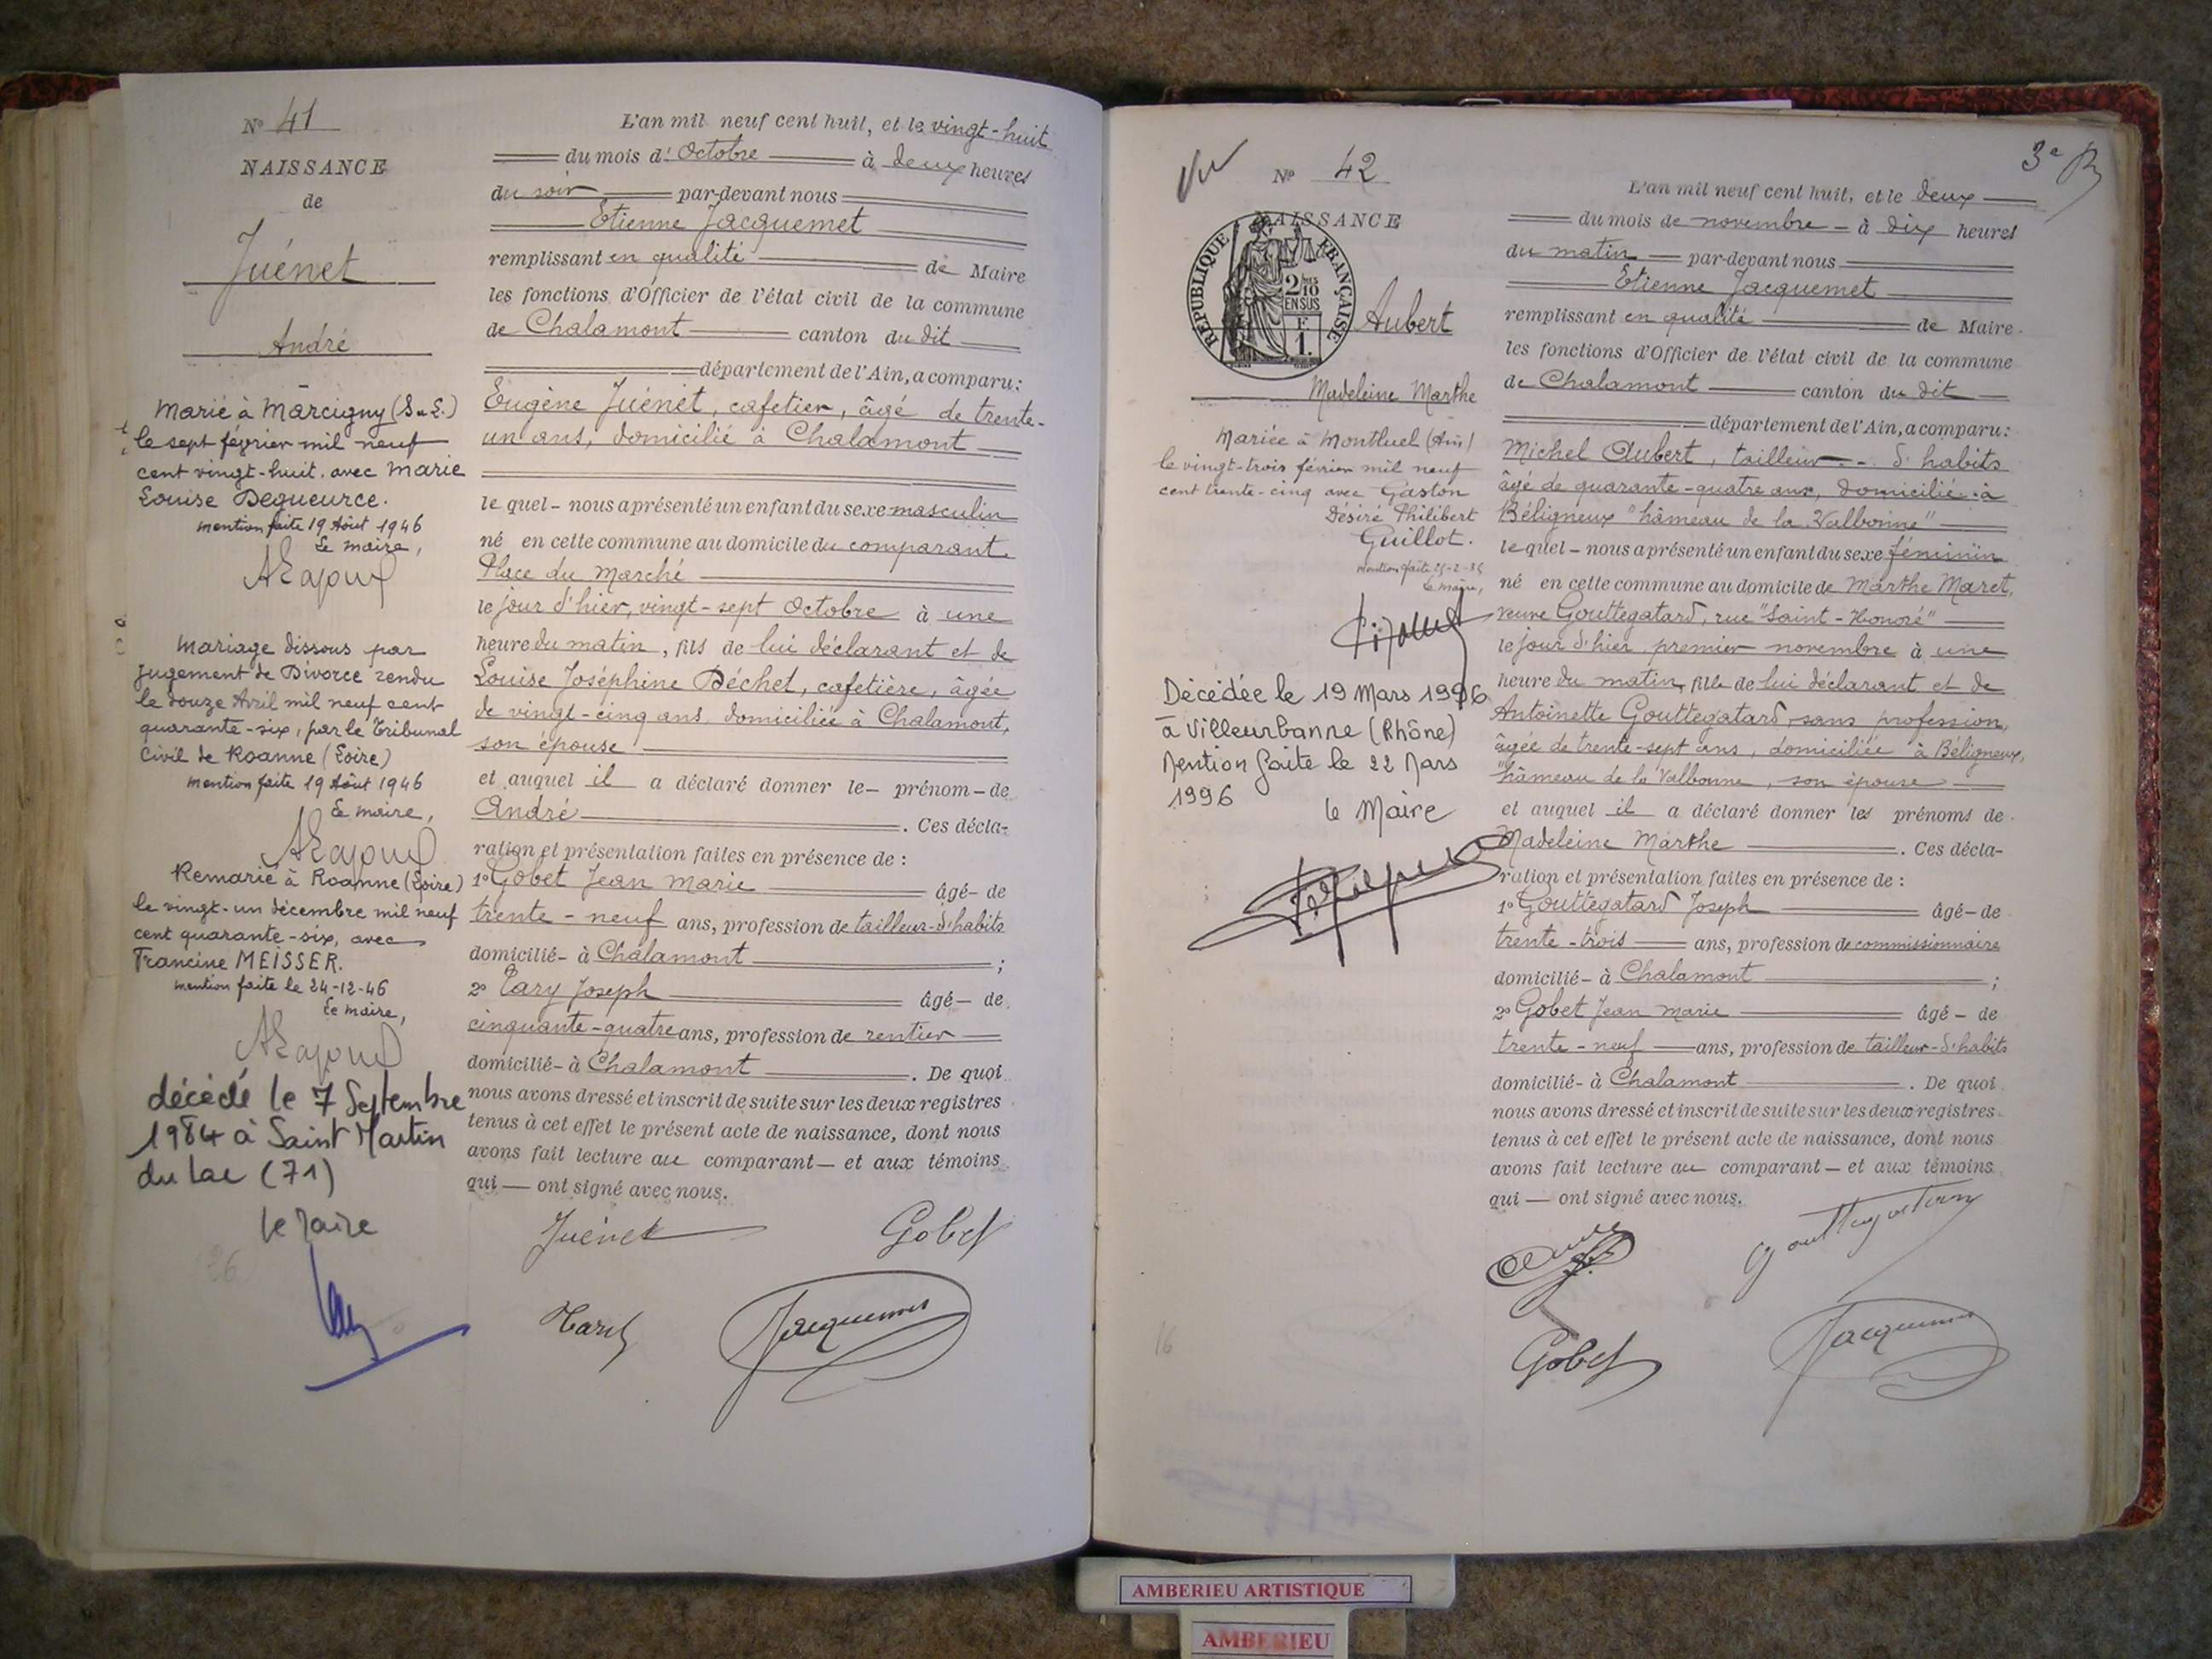 N° 41
NAISSANCE
de
Juénet
André
Marié à Marcigny (S. & L.)
le sept février mil neuf
cent vingt-huit, avec Marie
Louise Degueurce.
mention faite 19 Août 1946
Le maire,
Mariage dissous par
jugement de Divorce rendu
le douze Avril mil neuf cent
quarante-six, par le Tribunal
Civil de Roanne (Loire)
mention faite 19 Août 1946
Le maire,
Remarié à Roanne (Loire)
le vingt-un décembre mil neuf
cent quarante-six, avec
Francine MEISSER.
mention faite le 24-12-46
Le maire,
décédé le 7 Septembre
1984 à Saint Martin
du Lac (71)
le Maire
L'an mil neuf cent huit, et le vingt-huit
du mois d'Octobre à deux heures
du soir par-devant nous
Etienne Jacquemet
remplissant en qualité de Maire
les fonctions d'Officier de l'état civil de la commune
de Chalamont canton du dit
département de l'Ain, a comparu:
Eugène Juénet, cafetier, âgé de trente-
un ans, domicilié à Chalamont
le quel - nous a présenté un enfant du sexe masculin
né en cette commune au domicile du comparant
Place du Marché
le jour d'hier, vingt-sept Octobre à une
heure du matin, fils de lui déclarant et de
Louise Joséphine Déchet, cafetière, âgée
de vingt-cinq ans, domiciliée à Chalamont,
son épouse
et auquel il a déclaré donner le - prénom - de
André. Ces décla-
ration et présentation faites en présence de :
1° Gobet Jean Marie âgé - de
trente - neuf ans, profession de tailleur-d'habits
domicilié - à Chalamont ;
2° Joseph âgé - de
cinquante-quatre ans, profession de rentier
domicilié - à Chalamont. De quoi
nous avons dressé et inscrit de suite sur les deux registres
tenus à cet effet le présent acte de naissance, dont nous
avons fait lecture au comparant - et aux témoins
qui - ont signé avec nous.
Juénet
Gobet
Jacquemet
Vu
3e
N° 42
NAISSANCE
RÉPUBLIQUE FRANÇAISE
2/10
EN SUS
F
1.
Aubert
Madeleine Marthe
Mariée à Montluel (Ain)
le vingt-trois février mil neuf
cent trente-cinq avec Gaston
Désiré Philibert
Guillot.
mention faite
Le maire,
Décédée le 19 Mars 1996
à Villeurbanne (Rhône)
Mention faite le 22 Mars
1996
le Maire
L'an mil neuf cent huit, et le deux
du mois de novembre - à dix heures
du matin par-devant nous
Etienne Jacquemet
remplissant en qualité de Maire
les fonctions d'Officier de l'état civil de la commune
de Chalamont canton du dit
département de l'Ain, a comparu:
Michel Aubert, tailleur - d'habits
âgé de quarante-quatre ans, domicilié à
Béligneux "hâmeau de la Valbonne"
le quel - nous a présenté un enfant du sexe féminin
né en cette commune au domicile de Marthe Maret,
veuve Gouttegatard, rue "Saint-Honoré"
le jour d'hier premier novembre à une
heure du matin, fille de lui déclarant et de
Antoinette Gouttegatard, sans profession,
âgée de trente-sept ans, domiciliée à Béligneux,
"hâmeau de la Valbonne, son épouse
et auquel il a déclaré donner les prénoms de
Madeleine Marthe. Ces décla-
ration et présentation faites en présence de :
1° Gouttegatard Joseph âgé - de
trente - trois ans, profession de commissionnaire
domicilié - à Chalamont ;
2° Gobet Jean Marie âgé - de
trente - neuf ans, profession de tailleur-d'habits
domicilié - à Chalamont. De quoi
nous avons dressé et inscrit de suite sur les deux registres
tenus à cet effet le présent acte de naissance, dont nous
avons fait lecture au comparant - et aux témoins
qui - ont signé avec nous.
Gobet
Jacquemet
16
AMBERIEU ARTISTIQUE
AMBERIEU